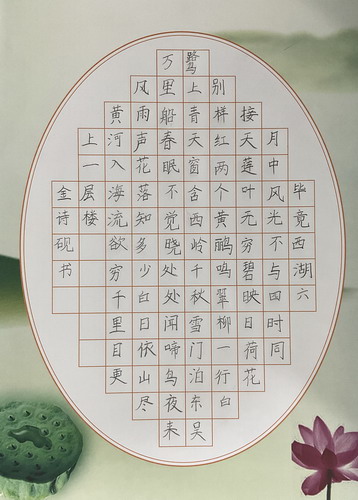 毕竟西湖六
月中风光不与四时同
接天莲叶无穷碧映日荷花
别样红两个黄鹂鸣翠柳一行白
鹭上青天窗含西岭千秋雪门泊东吴
万里船春眠不觉晓处处闻啼鸟夜来
风雨声花落知多少白日依山尽
黄河入海流欲穷千里目更
上一层楼
金诗砚书